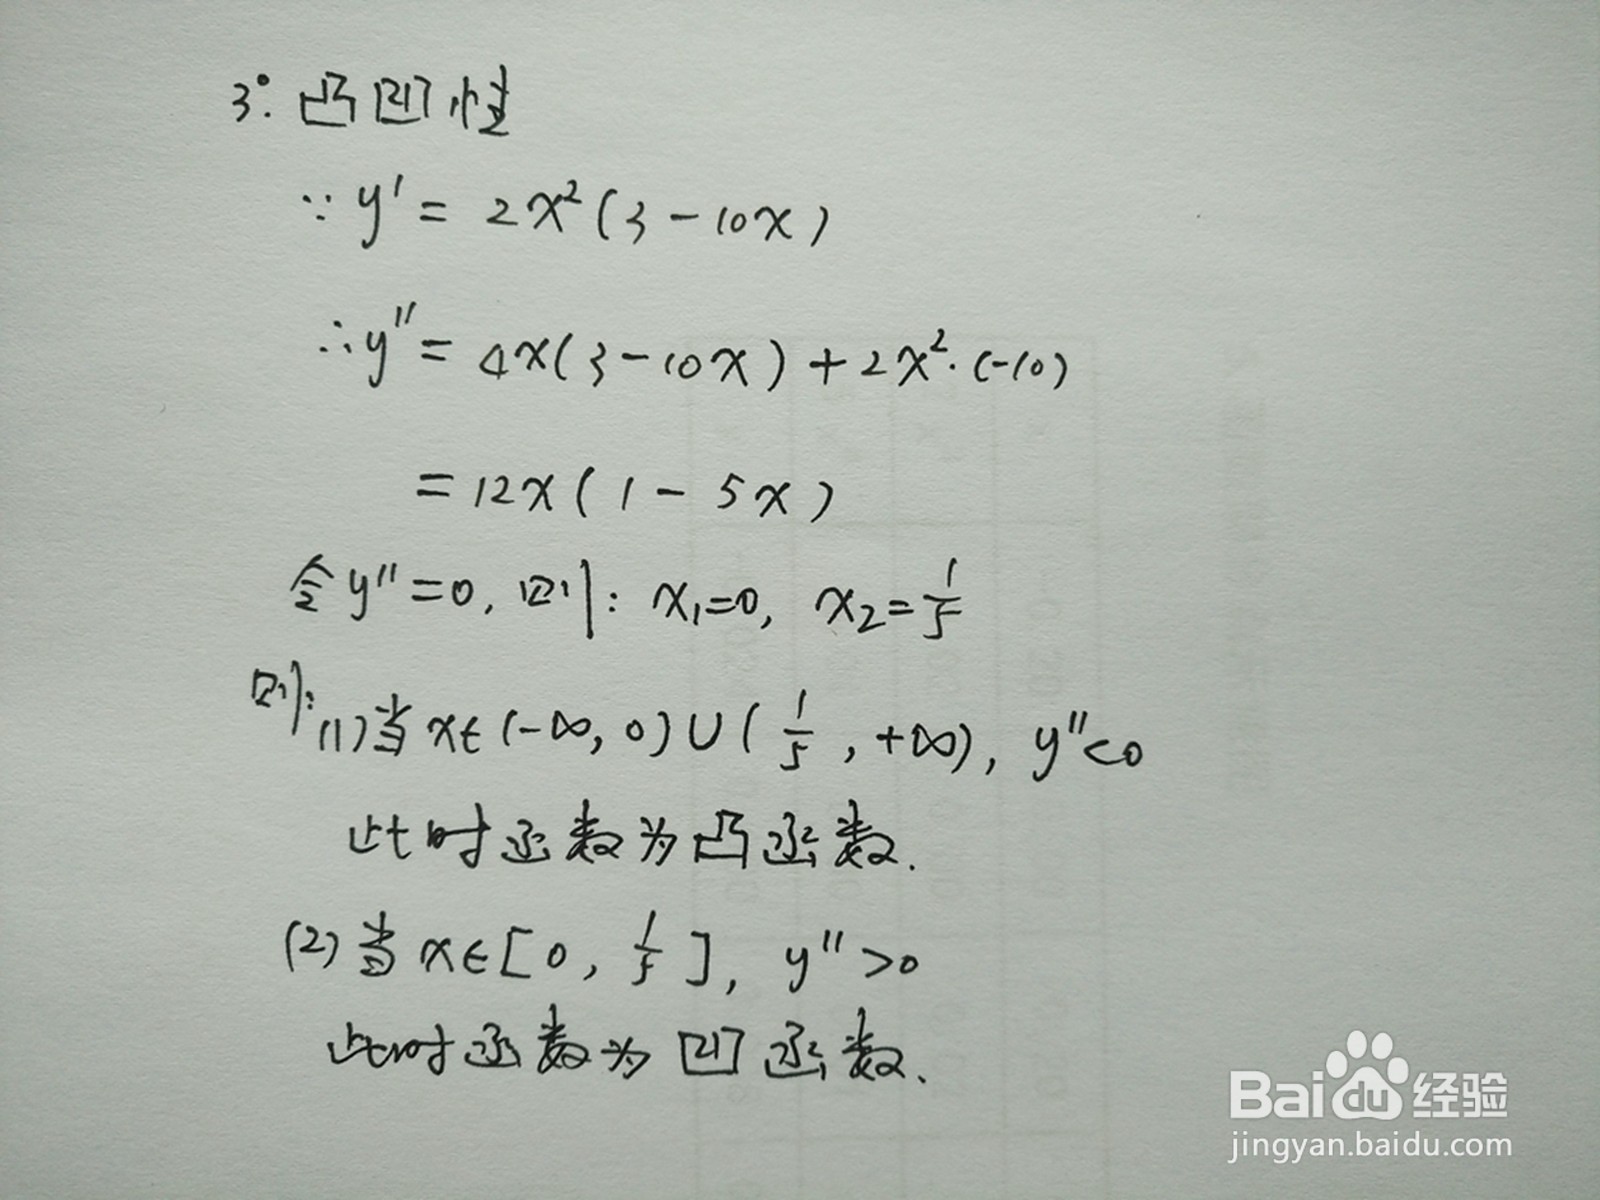 3°. 凸凹性
∵ y' = 2x²(3-10x)
∴ y'' = 4x(3-10x)+2x²·(-10)
=12x(1-5x)
令y''=0, 则: x₁=0, x₂=1/5
则:(1)当x∈(-∞,0)∪(1/5,+∞), y''<0
此时函数为凸函数.
(2)当x∈[0, 1/5], y''>0
此时函数为凹函数.
Baidu经验
jingyan.baidu.com